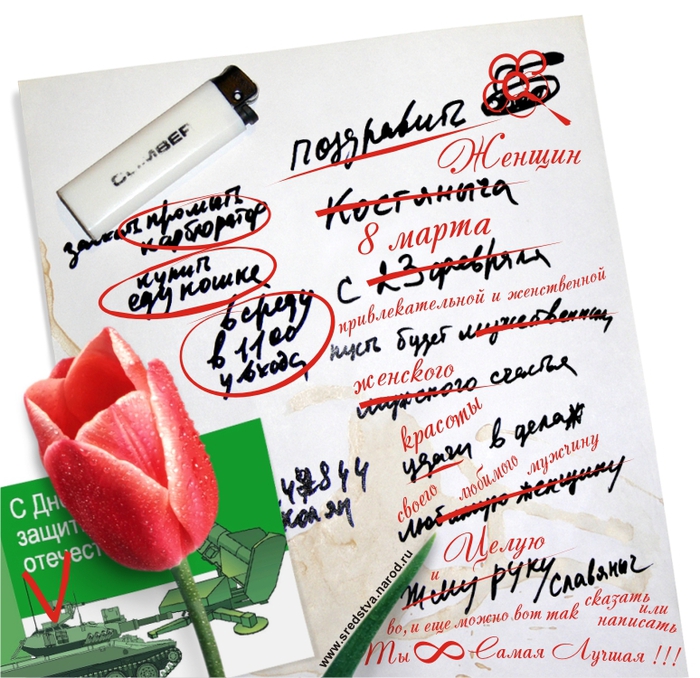 поздравить
Женщин
Костяныча
8 марта
с 23 февраля
привлекательной и женственной
пусть будет мужественным
женского
мужского счастья
красоты
удачи в делах
своего любимого мужчину
любимую женщину
Целую
и
жму руку Славяныч
во, и еще можно вот так сказать или написать
Ты ∞ Самая Лучшая !!!
промыть
карбюратор
купить
еду кошке
в среду
в 11 00
у входа
Колян
С Дн
защит
отечест
www.sredstva.narod.ru